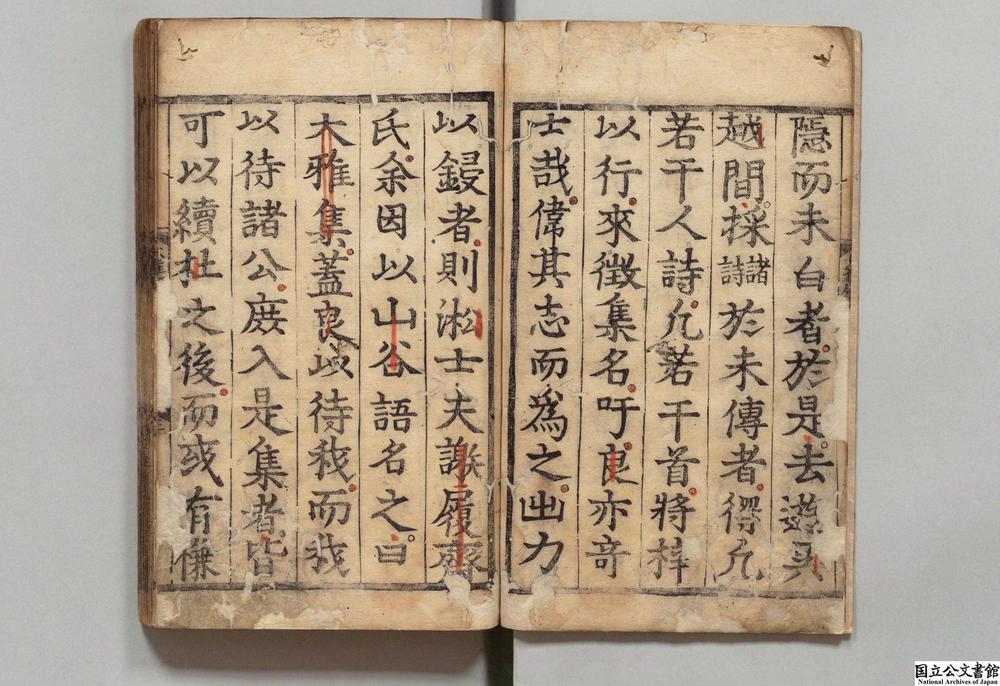 隱而未白者於是去遊吴
越間採諸詩於未傳者得凡
若干人詩凡若干首將梓
以行來徵集名吁良亦竒
士哉偉其志而爲之出力
以鋟者則淞士夫謝履齋
氏余因以山谷語名之曰
大雅集蓋良以待我而我
以待諸公庻入是集者皆
可以續杜之後而或有慊
国立公文書館
National Archives of Japan